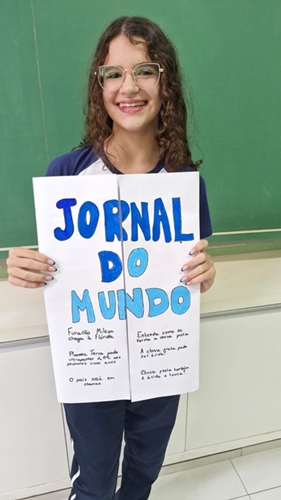 JORNAL
DO
MUNDO
Furacão Milton
chega à Flórida
Planeta Terra pode
ultrapassar 1,5°C nos
próximos cinco anos
O país está em
chamas
Entenda como se
forma a chuva preta
A chuva preta pode
ser ácida?
Chuva preta também
é ácida e tóxica?